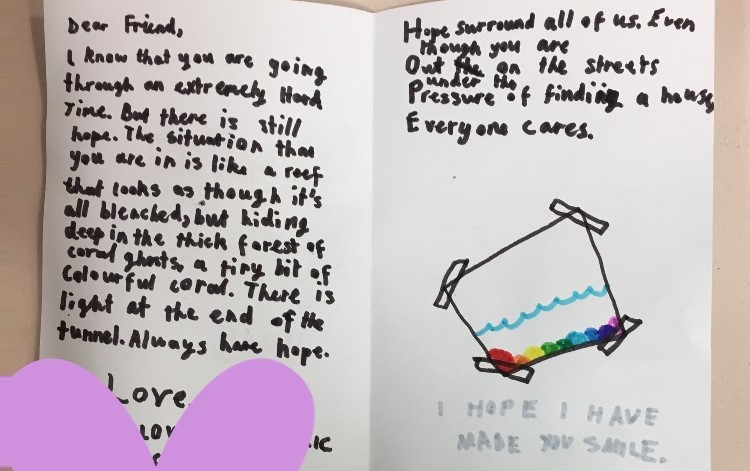 Dear Friend,
I know that you are going
through an extremely Hard
Time. But there is still
hope. The situation that
you are in is like a reef
that looks as though it's
all bleached, but hiding
deep in the thick forest of
coral ghosts, a tiny bit of
colourful coral. There is
light at the end of the
tunnel. Always have hope.
Love
Hope surround all of us. Even
though you are
Out the on the streets
under the
Pressure of finding a house,
Everyone cares.
I HOPE I HAVE
MADE YOU SMILE.